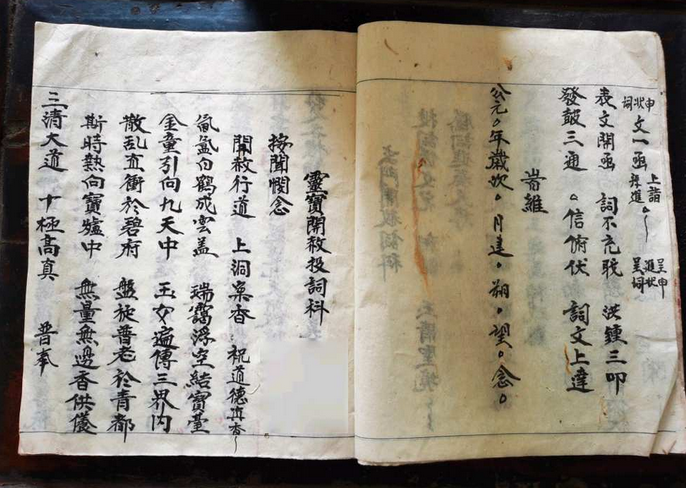 申狀詞 文一函 上詣 。 呈申 進狀 呈詞
表文開函 詞不充 洪鍾三叩
發鼓三通 。信俯伏 詞文上達
耑維
公元。年歲次。月建。朔。望。念。
靈寶開赦投詞科
念
開赦行道 上洞稟香 祝道德真香
氤氳白鶴成雲蓋 瑞靄浮空結寶臺
金童引向九天中 玉女遍傳三界內
散乱直衝於碧府 盤旋普老於青都
斯時熱向寶爐中 無量無邊香供儀
三清大道 十極高真 普奉